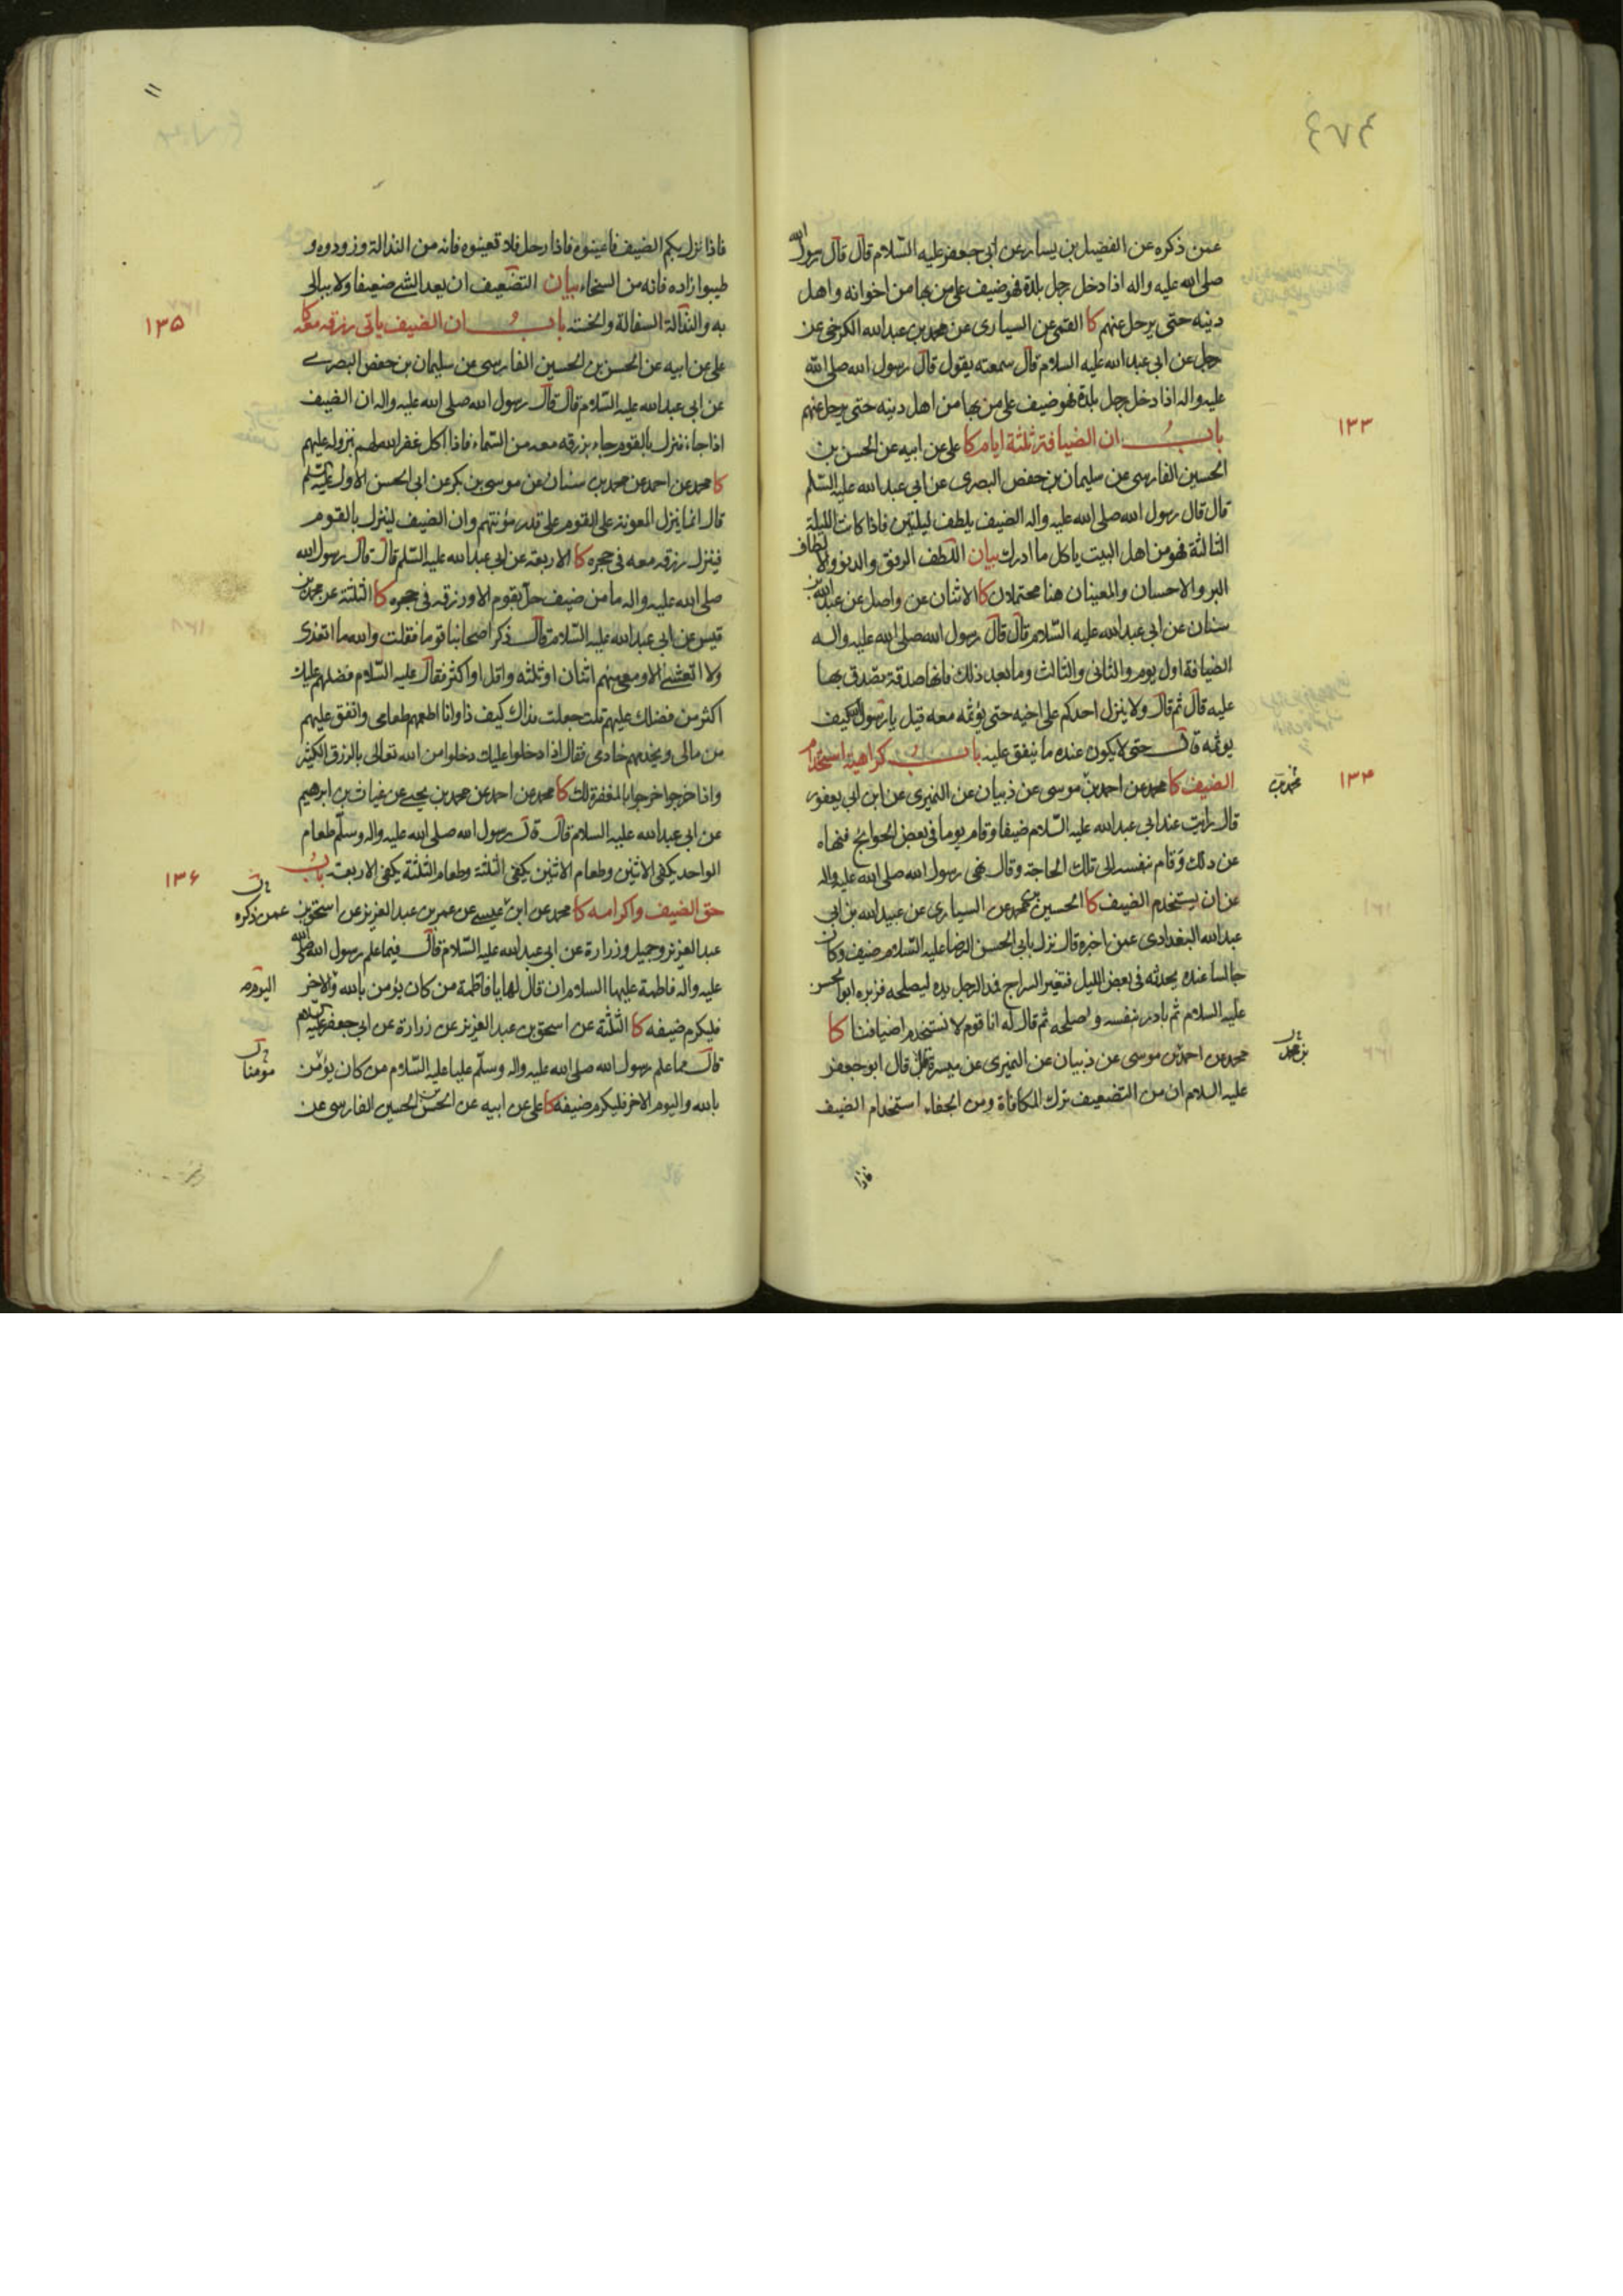 عمن ذكره عن الفضيل بن يسار عن ابى جعفر عليه السّلام قال قال رسول الله
صلى الله عليه واله اذا دخل رجل بلدة فهو ضيف على من بها من اخوانه و اهل
دينه حتى يرحل عنهم كا القمى عن السيارى عن محمد بن عبدالله الكرخى عن
رجل عن ابى عبدالله عليه السلام قال سمعته يقول قال رسول الله صلى الله
عليه واله اذا دخل رجل بلدة فهو ضيف على من بها من اهل دينه حتى يرحل عنهم
باب ان الضيافة ثلثة ايام كا على عن ابيه عن الحسن بن
۱۳۳
الحسين الفارسى عن سليمان بن حفص البصرى عن ابى عبدالله عليه السّلم
قال قال رسول الله صلى الله عليه واله الضيف يلطف ليلتين فاذا كانت الليلة
الثالثة فهو من اهل البيت ياكل ما ادرك بيان اللطف الرفق والدنو والالطاف
البر والاحسان والمعنيان هنا محتملان كا الاثنان عن واصل عن عبدالله بن
سنان عن ابى عبدالله عليه السّلام قال قال رسول الله صلى الله عليه واله
الضيافة اول يوم والثانى والثالث وما بعد ذلك فانها صدقة تصدق بها
عليه قال ثم قال ولا ينزل احدكم على اخيه حتى يؤثمه معه قيل يا رسول الله كيف
يوثمه قال حتى لا يكون عنده ما ينفق عليه باب كراهية استخدام
الضيف كا محمد عن احمد بن موسى عن ذبيان عن النميرى عن ابن ابى يعفور
محمد بن
۱۳۴
قال رايت عند ابى عبدالله عليه السّلام ضيفا وقام يوما فى بعض الحوائج فنهاه
عن ذلك وقام بنفسه الى تلك الحاجة وقال نهى رسول الله صلى الله عليه واله
عن ان يستخدم الضيف كا الحسين بن محمد عن السيارى عن عبيد الله بن ابى
عبدالله البغدادى عمن اخبره قال نزل بابى الحسن الرضا عليه السّلام ضيف وكان
جالسا عنده يحدثه فى بعض الليل فتغير السراج فمد الرجل يده ليصلحه فزبره ابو الحسن
عليه السلام ثم بادر بنفسه واصلحه ثم قال له انا قوم لا نستخدم اضيافنا كا
محمد عن احمد بن موسى عن ذبيان عن النميرى عن ميسرة قال قال ابو جعفر
بن محمد
عليه السلام ان من التضعيف ترك المكافاة ومن الجفاء استخدام الضيف
فاذا
فاذا نزل بكم الضيف فاعينوه فاذا رحل فلا تعينوه فانه من النذالة وزودوه و
طيبوا زاده فانه من السخاء بيان التضعيف ان يعد الشئ ضعيفا ولا يبالى
به والنذالة السفالة والخسة باب ان الضيف ياتى رزقه معه كا
۱۳۵
على عن ابيه عن الحسن بن الحسين الفارسى عن سليمان بن حفص البصرى
عن ابى عبدالله عليه السّلام قال قال رسول الله صلى الله عليه واله ان الضيف
اذا جاء فنزل بالقوم جاء برزقه معه من السماء فاذا اكل غفر الله لهم بنزوله عليهم
كا محمد عن احمد عن محمد بن سنان عن موسى بن بكر عن ابى الحسن الاول عليه السّلم
قال انما ينزل المعونة على القوم على قدر مؤنتهم وان الضيف لينزل بالقوم
فينزل رزقه معه فى حجره كا الاربعة عن ابى عبدالله عليه السّلم قال قال رسول الله
صلى الله عليه واله ما من ضيف حل بقوم الا ورزقه فى حجره كا الثلثة عن محمد بن
قيس عن ابى عبدالله عليه السّلام قال ذكر اصحابنا قوما فقلت والله ما اتغدى
ولا اتعشى الا ومعى منهم اثنان او ثلثه واقل او اكثر فقال عليه السّلام فضلهم عليك
اكثر من فضلك عليهم قلت جعلت فداك كيف ذا وانا اطعمهم طعامى وانفق عليهم
من مالى ويخدمهم خادمى فقال اذا دخلوا عليك دخلوا من الله تعالى بالرزق الكثير
واذا خرجوا خرجوا بالمغفرة لك كا محمد عن احمد عن محمد بن يحيى عن غياث بن ابرهيم
عن ابى عبدالله عليه السلام قال قال رسول الله صلى الله عليه واله وسلّم طعام
الواحد يكفى الاثنين وطعام الاثنين يكفى الثلثة وطعام الثلثة يكفى الاربعة باب
۱۳۶
حق الضيف واكرامه كا محمد عن ابن عيسى عن عمر بن عبد العزيز عن اسحق بن
عمن ذكره
عبد العزيز وجميل وزرارة عن ابى عبدالله عليه السّلام قال فيما علم رسول الله صلى الله
عليه واله فاطمة عليها السلام ان قال لها يا فاطمة من كان يؤمن بالله والاخر
اليوم
فليكرم ضيفه كا الثلثة عن اسحق بن عبد العزيز عن زرارة عن ابى جعفر عليه السلام
قال مما علم رسول الله صلى الله عليه واله وسلّم عليا عليه السّلام من كان يؤمن
مومنا
بالله واليوم الاخر فليكرم ضيفه كا على عن ابيه عن الحسن بن الحسين الفارسى عن